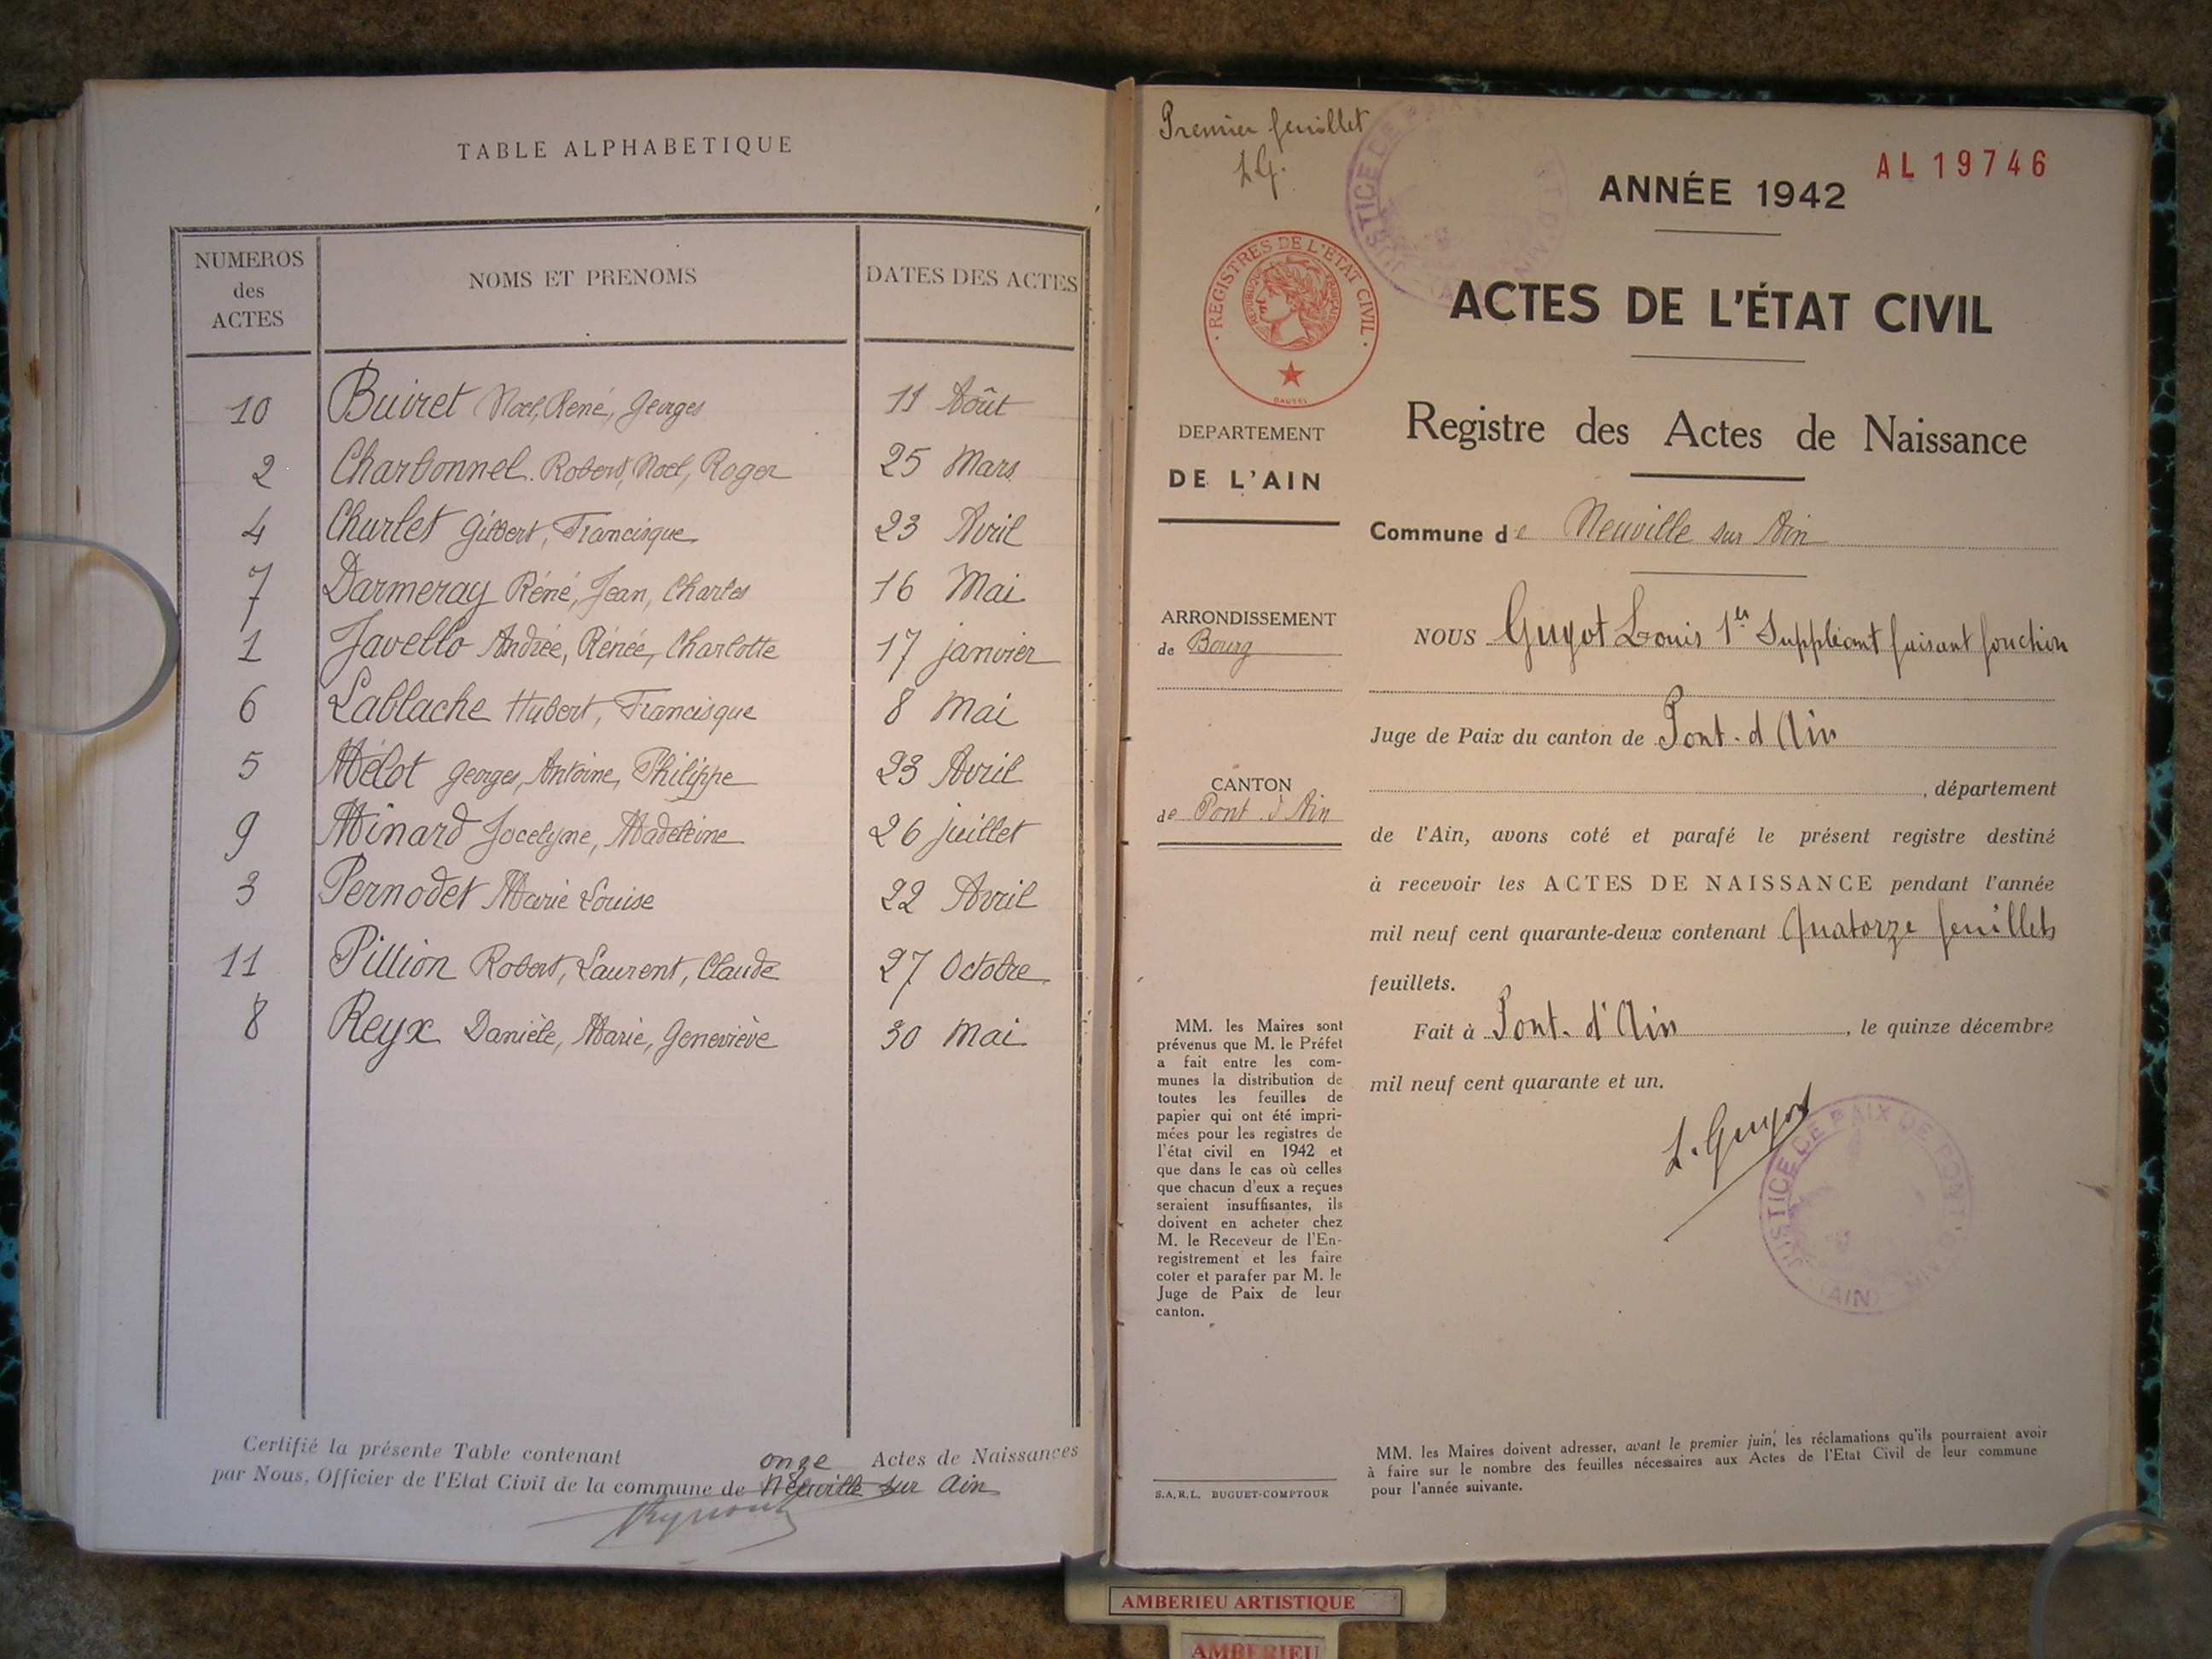 TABLE ALPHABETIQUE
NUMEROS des ACTES NOMS ET PRENOMS DATES DES ACTES
10 Buiret Noel, René, Georges 11 Août
2 Charbonnel Robert, Noel, Roger 25 Mars
4 Churlet Gilbert, Francisque 23 Avril
7 Darmeray Réné, Jean, Charles 16 Mai
1 Javello Andrée, Rénée, Charlotte 17 janvier
6 Lablache Hubert, Francisque 8 Mai
5 Mélot Georges, Antoine, Philippe 23 Avril
9 Minard Jocelyne, Madeleine 26 juillet
3 Pernodet Marie Louise 22 Avril
11 Pillion Robert, Laurent, Claude 27 Octobre
8 Reyx Danièle, Marie, Geneviève 30 Mai
Certifié la présente Table contenant onze Actes de Naissances
par Nous, Officier de l'Etat Civil de la commune de Neuville sur Ain
Premier feuillet
L.G.
AL 19746
ANNÉE 1942
REGISTRES DE L'ETAT CIVIL
REPUBLIQUE FRANÇAISE
JUSTICE DE PAIX
ACTES DE L'ÉTAT CIVIL
DEPARTEMENT
DE L'AIN
Registre des Actes de Naissance
Commune de Neuville sur Ain
ARRONDISSEMENT
de Bourg
NOUS Guyot Louis 1er Suppléant faisant fonction
Juge de Paix du canton de Pont-d'Ain
CANTON
de Pont d'Ain
, département
de l'Ain, avons coté et parafé le présent registre destiné
à recevoir les ACTES DE NAISSANCE pendant l'année
mil neuf cent quarante-deux contenant Quatorze feuillets
feuillets.
Fait à Pont-d'Ain, le quinze décembre
mil neuf cent quarante et un.
L. Guyot
JUSTICE DE PAIX DE PONT D'AIN
(AIN)
MM. les Maires sont
prévenus que M. le Préfet
a fait entre les com-
munes la distribution de
toutes les feuilles de
papier qui ont été impri-
mées pour les registres de
l'état civil en 1942 et
que dans le cas où celles
que chacun d'eux a reçues
seraient insuffisantes, ils
doivent en acheter chez
M. le Receveur de l'En-
registrement et les faire
coter et parafer par M. le
Juge de Paix de leur
canton.
S.A.R.L. BUGUET-COMPTOUR
MM. les Maires doivent adresser, avant le premier juin, les réclamations qu'ils pourraient avoir
à faire sur le nombre des feuilles nécessaires aux Actes de l'Etat Civil de leur commune
pour l'année suivante.
AMBERIEU ARTISTIQUE
AMBERIEU